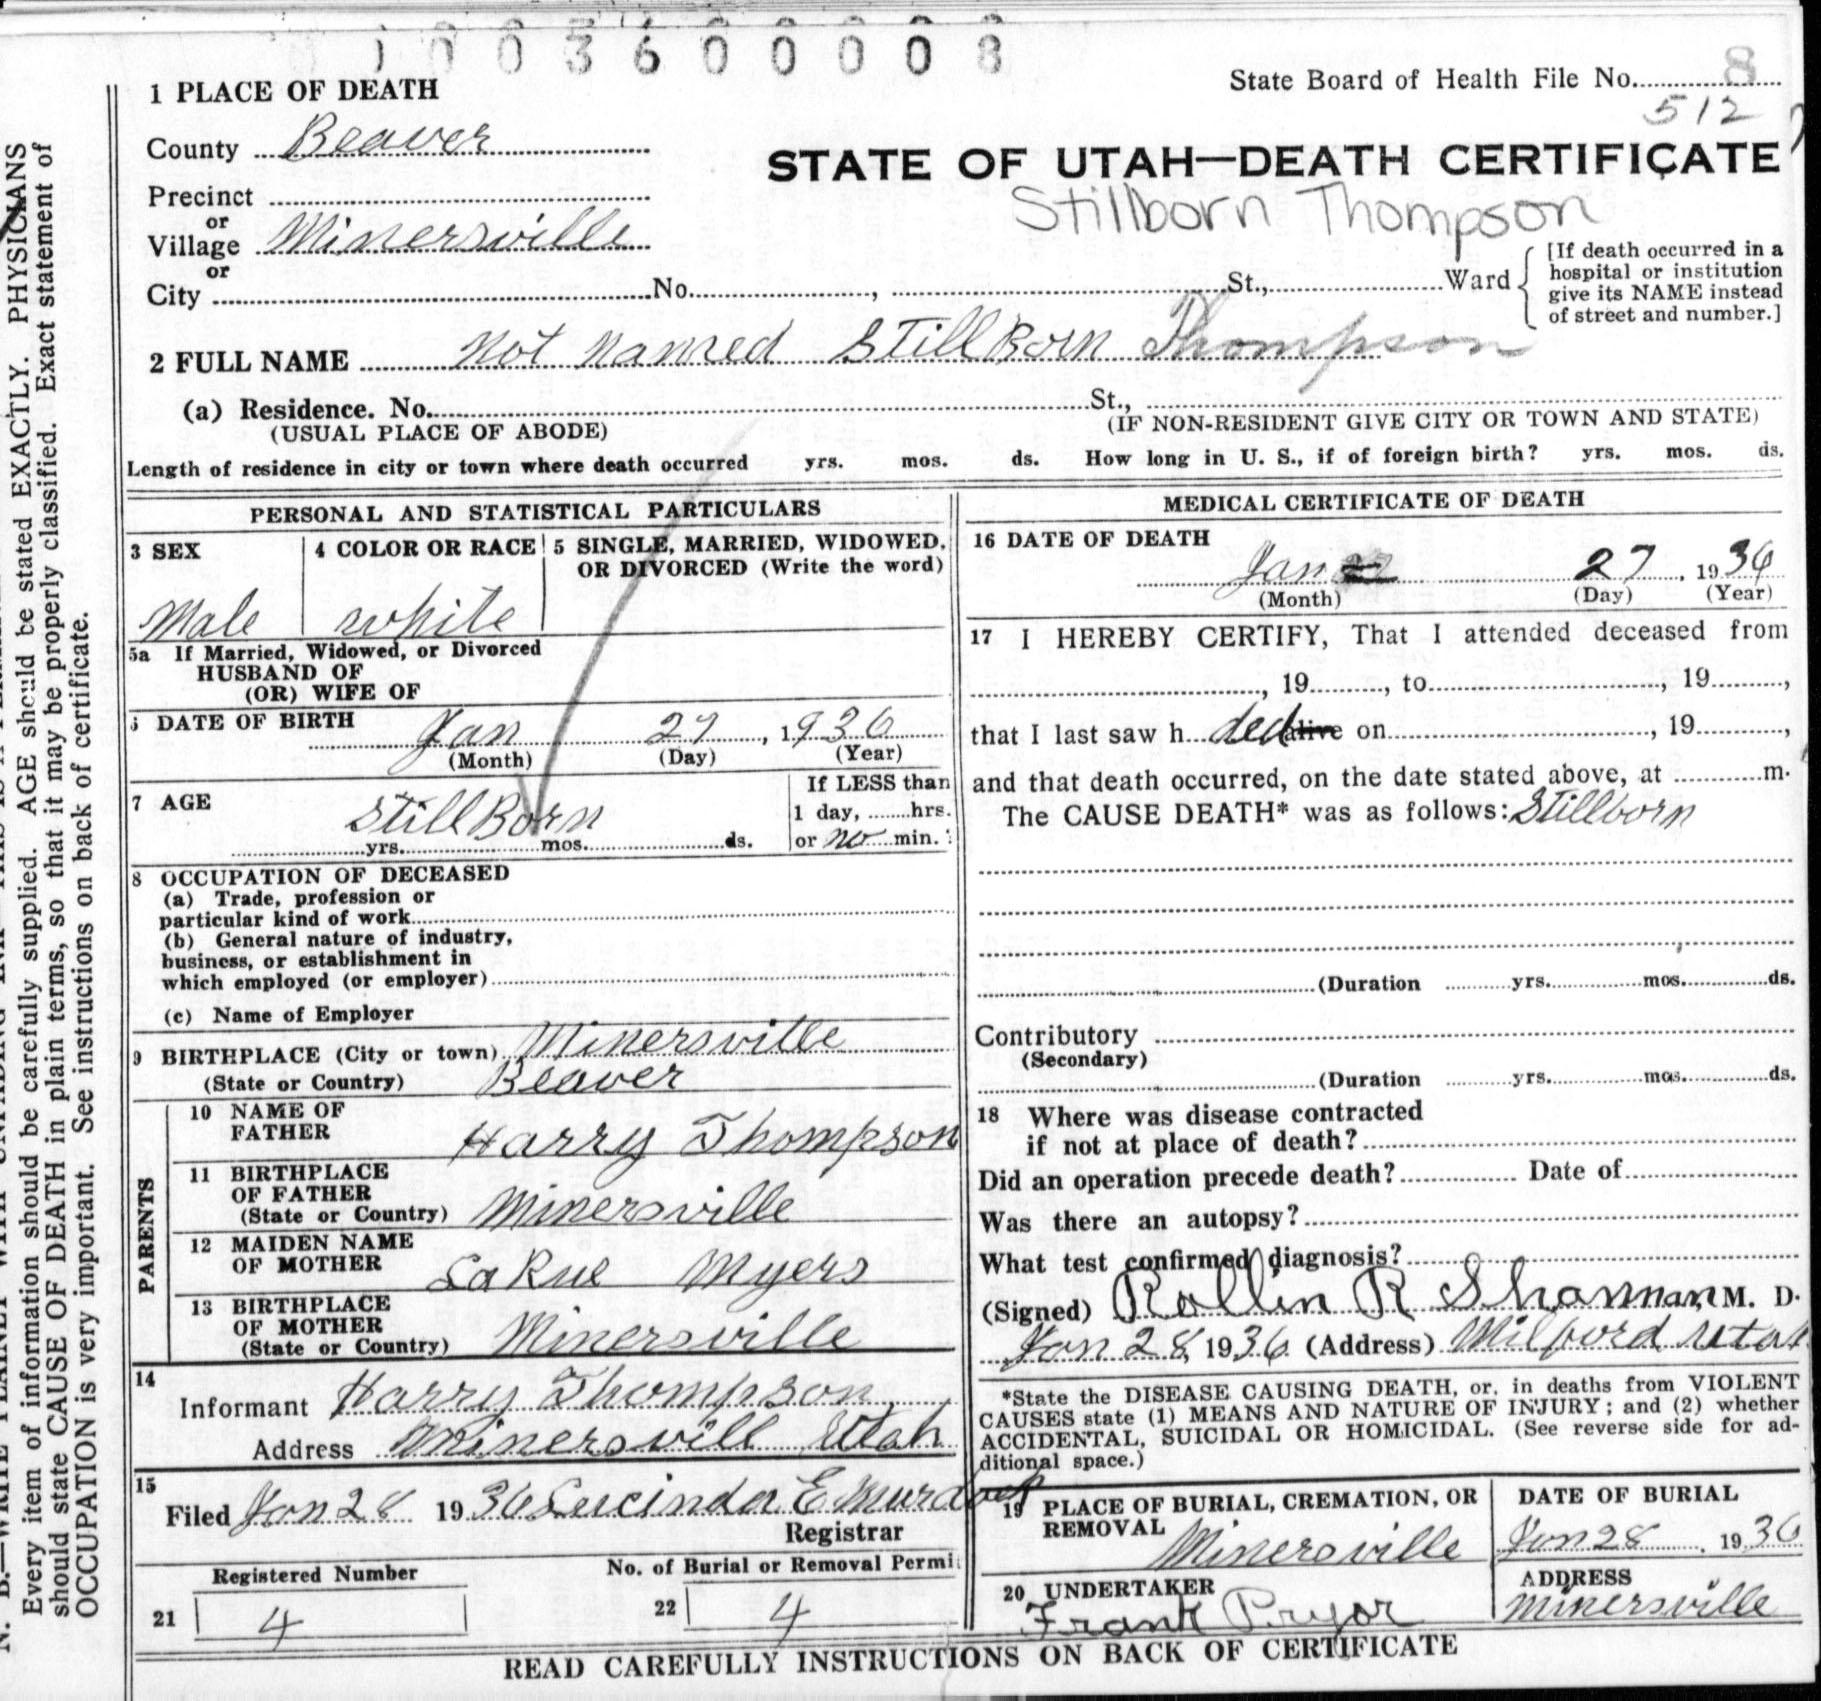 1 0 0 3 6 0 0 0 0 8
State Board of Health File No. 8
512
1 PLACE OF DEATH
County Beaver
STATE OF UTAH—DEATH CERTIFICATE
Stillborn Thompson
Precinct
or
Village Minersville
or
City No. , St., Ward
[If death occurred in a
hospital or institution
give its NAME instead
of street and number.]
2 FULL NAME Not Named StillBorn Thompson
(a) Residence. No. St.,
(USUAL PLACE OF ABODE) (IF NON-RESIDENT GIVE CITY OR TOWN AND STATE)
Length of residence in city or town where death occurred yrs. mos. ds. How long in U. S., if of foreign birth? yrs. mos. ds.
PERSONAL AND STATISTICAL PARTICULARS
3 SEX
Male
4 COLOR OR RACE
White
5 SINGLE, MARRIED, WIDOWED,
OR DIVORCED (Write the word)
5a If Married, Widowed, or Divorced
HUSBAND OF
(OR) WIFE OF
6 DATE OF BIRTH Jan 27, 1936
(Month) (Day) (Year)
7 AGE StillBorn
yrs. mos. ds.
If LESS than
1 day, hrs.
or no min.
8 OCCUPATION OF DECEASED
(a) Trade, profession or
particular kind of work
(b) General nature of industry,
business, or establishment in
which employed (or employer)
(c) Name of Employer
9 BIRTHPLACE (City or town) Minersville
(State or Country) Beaver
PARENTS
10 NAME OF
FATHER Harry Thompson
11 BIRTHPLACE
OF FATHER
(State or Country) Minersville
12 MAIDEN NAME
OF MOTHER LaRue Myers
13 BIRTHPLACE
OF MOTHER
(State or Country) Minersville
14
Informant Harry Thompson
Address Minersvill Utah
15
Filed Jan 28 1936 Lucinda E Murdock
Registrar
Registered Number
21 4
No. of Burial or Removal Permi
22 4
MEDICAL CERTIFICATE OF DEATH
16 DATE OF DEATH
Jan 27, 1936
(Month) (Day) (Year)
17 I HEREBY CERTIFY, That I attended deceased from
, 19 , to , 19 ,
that I last saw h ded alive on , 19 ,
and that death occurred, on the date stated above, at m.
The CAUSE DEATH* was as follows: Stillborn
(Duration yrs. mos. ds.
Contributory
(Secondary)
(Duration yrs. mos. ds.
18 Where was disease contracted
if not at place of death?
Did an operation precede death? Date of
Was there an autopsy?
What test confirmed diagnosis?
(Signed) Rollin R Shannan, M. D.
Jan 28, 1936 (Address) Milford Utah
*State the DISEASE CAUSING DEATH, or, in deaths from VIOLENT
CAUSES state (1) MEANS AND NATURE OF INJURY; and (2) whether
ACCIDENTAL, SUICIDAL OR HOMICIDAL. (See reverse side for ad-
ditional space.)
19 PLACE OF BURIAL, CREMATION, OR
REMOVAL
Minersville
DATE OF BURIAL
Jan 28, 1936
20 UNDERTAKER
Frank Pryor
ADDRESS
Minersville
READ CAREFULLY INSTRUCTIONS ON BACK OF CERTIFICATE
Every item of information should be carefully supplied. AGE should be stated EXACTLY. PHYSICIANS
should state CAUSE OF DEATH in plain terms, so that it may be properly classified. Exact statement of
OCCUPATION is very important. See instructions on back of certificate.